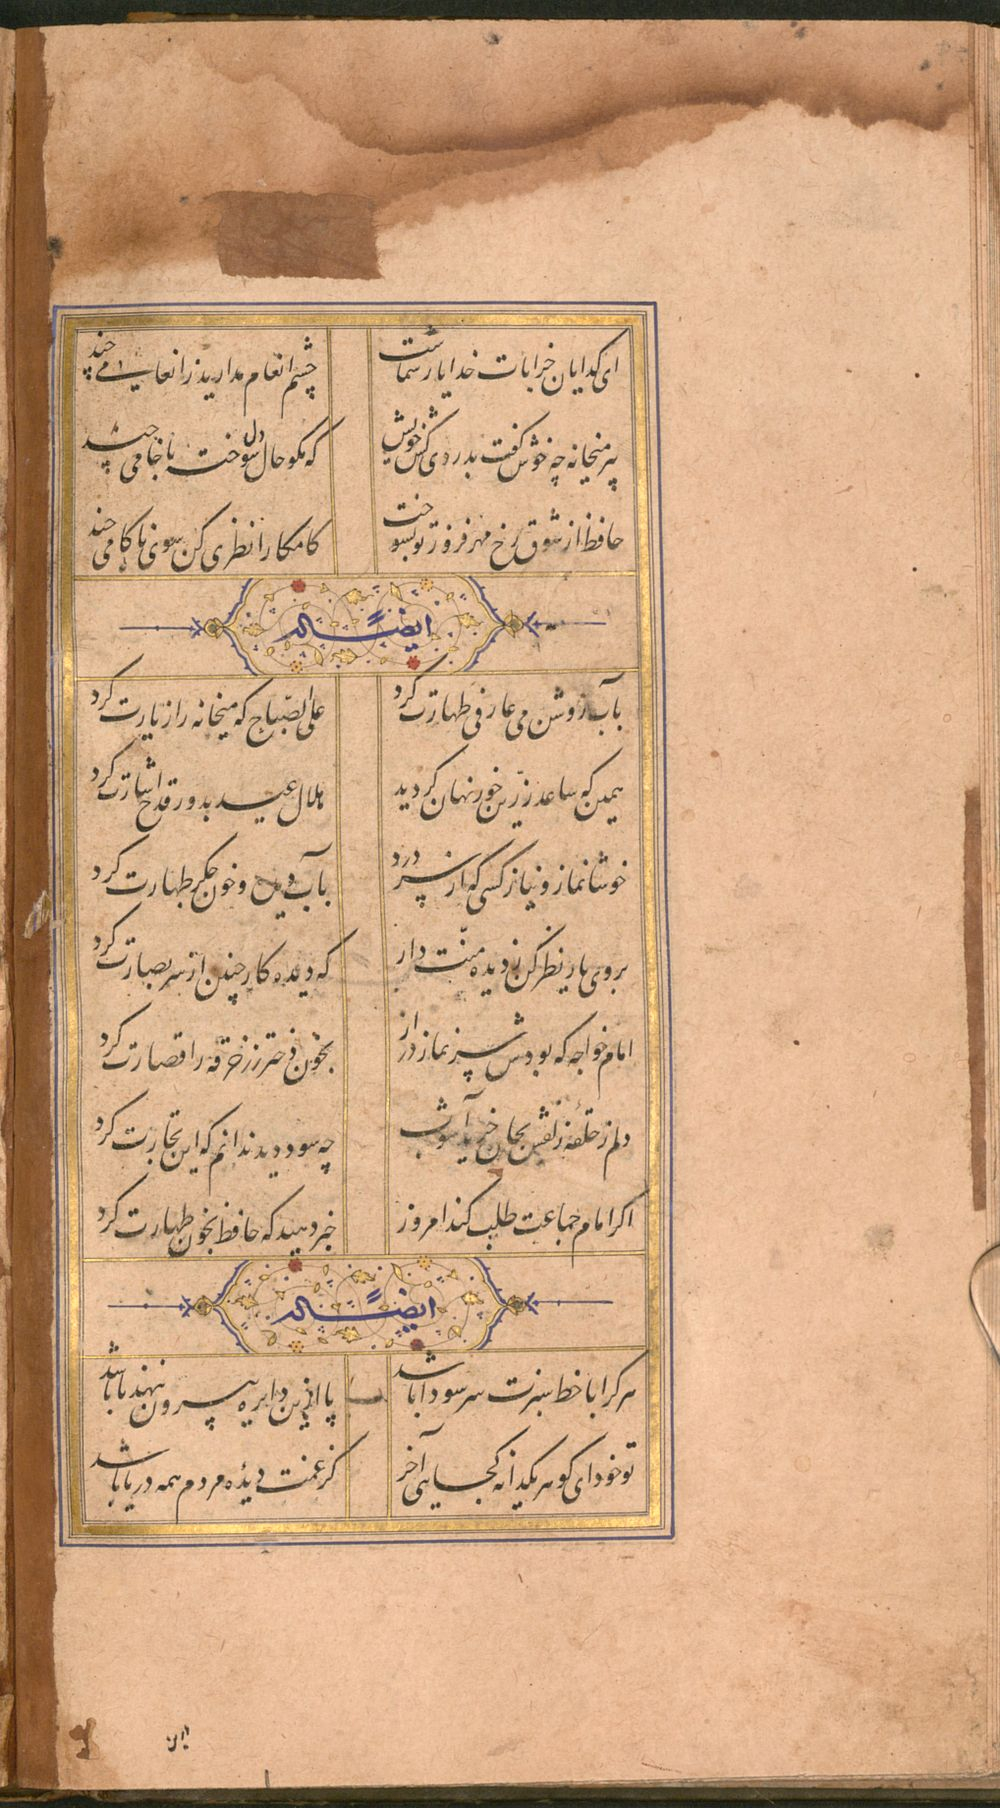 ای کدایان خرابات خدا یار شماست
چشم انعام مدارید ز انعامی چند
پیر میخانه چه خوش گفت بدردی کش خویش
که مکو حال دل سوخته با خامی چند
حافظ از شوق رخ مهر فروز تو بسوخت
کامکارا نظری کن سوی ناکامی چند
ایضاً له
بآب روشن می عارفی طهارت کرد
علی الصباح که میخانه را زیارت کرد
همین که ساعد زرین خور نهان کردید
هلال عید بدور قدح اشارت کرد
خوشا نماز و نیاز کسی که از سر درد
بآب دیده و خون جکر طهارت کرد
بروی یار نظر کن ز دیده منت دار
که دیده کار چنین از سر بصارت کرد
امام خواجه که بودش سر نماز دراز
بخون دختر رز خرقه را قصارت کرد
دلم ز حلقه زلفین بجان خرید آشوب
چه سود دید ندانم که این تجارت کرد
اکر امام جماعت طلب کند امروز
خبر دهید که حافظ بخون طهارت کرد
ایضاً له
هر کرا با خط سبزت سر سودا باشد
پا ازین دایره بیرون ننهد تا باشد
تو خود ای کوهر یکدانه کجایی آخر
کز غمت دیده مردم همه دریا باشد